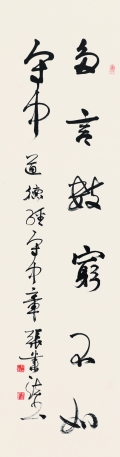 多言數窮不如
守中
道德經守中章 張